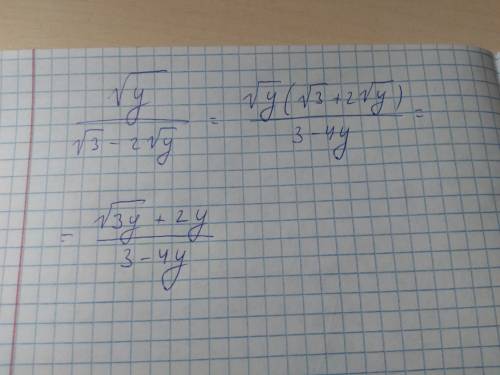 √y / (√3 - 2√y) = √y(√3 + 2√y) / (3 - 4y) =
= (√3y + 2y) / (3 - 4y)